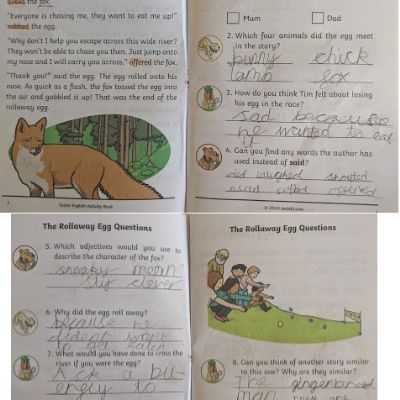 asked the fox.
"Everyone is chasing me, they want to eat me up!"
sobbed the egg.
"Why don't I help you escape across this wide river?
They won't be able to chase you then. Just jump onto
my nose and I will carry you across," offered the fox.
"Thank you!" said the egg. The egg rolled onto his
nose. As quick as a flash, the fox tossed the egg into
the air and gobbled it up! That was the end of the
rollaway egg.
Easter English Activity Book
Mum
Dad
2. Which four animals did the egg meet
in the story?
bunny chick
lamb fox
3. How do you think Tim felt about losing
his egg in the race?
sad because
he wanted to eat
it
4. Can you find any words the author has
used instead of said?
laughed shouted
asked sobbed offered
The Rollaway Egg Questions
5. Which adjectives would you use to
describe the character of the fox?
sneaky mean
sly clever
6. Why did the egg roll away?
because he
dident want
to get eaten
7. What would you have done to cross the
river if you were the egg?
Ask a bu-
to
The Rollaway Egg Questions
8. Can you think of another story similar
to this one? Why are they similar?
The gingerbread
man